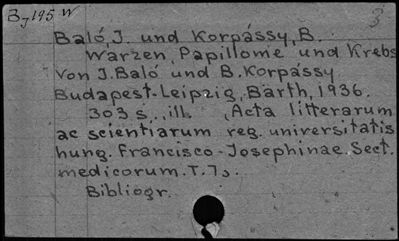 Bj195 W
3
Baló, J. und Korpássy, B.
Warzen, Papillome und Krebs
von J. Baló und B. Korpássy
Budapest-Leipzig, Barth, 1936.
303 s., ill. (Acta litterarum
ac scientiarum reg. universitatis
hung. Francisco-Josephinae. Sect.
medicorum. T. 7).
Bibliogr.